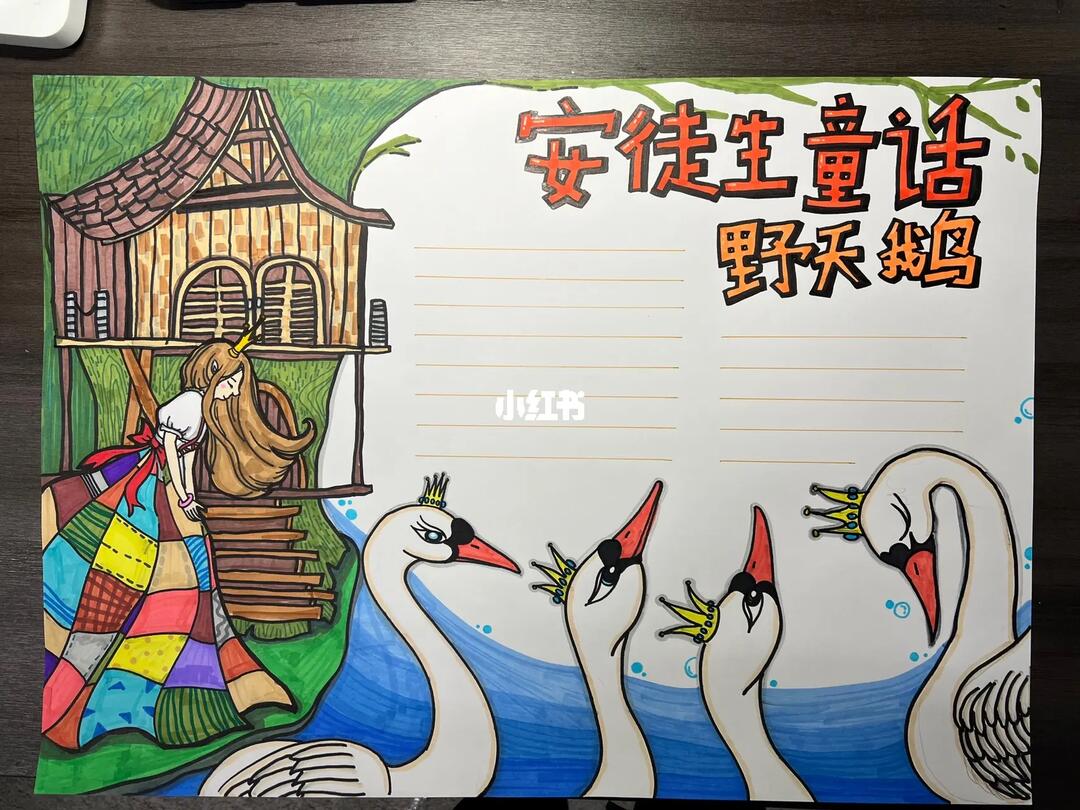 安徒生童话
野天鹅
小红书